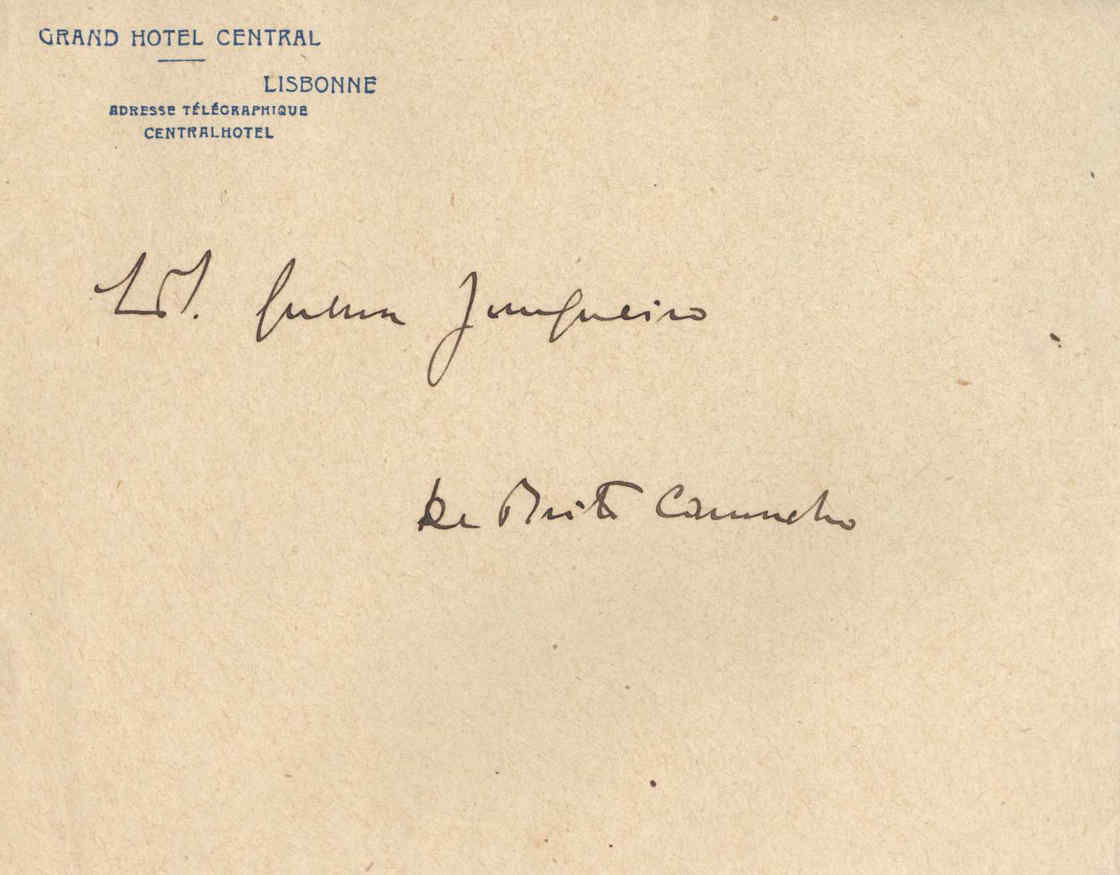 GRAND HOTEL CENTRAL
LISBONNE
ADRESSE TÉLÉGRAPHIQUE
CENTRALHOTEL
Guerra Junqueiro
De Brito Camacho